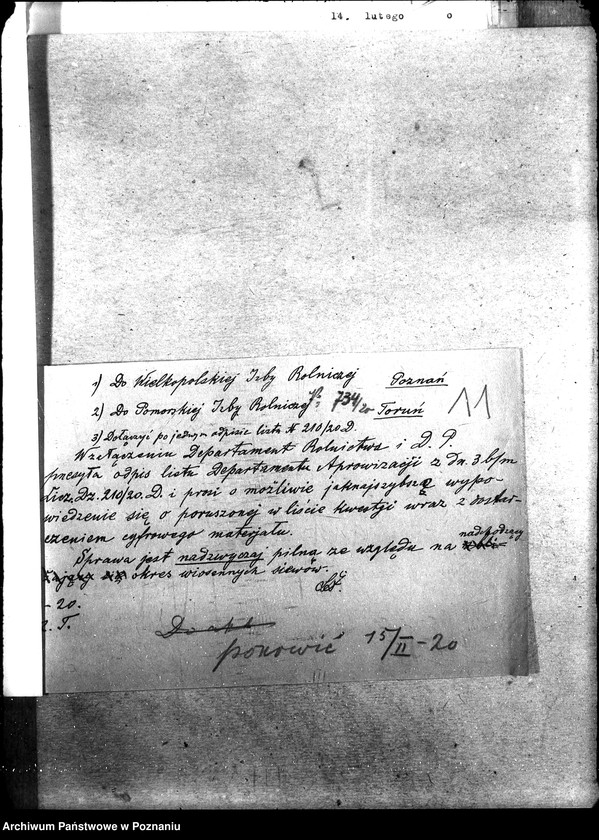 14. lutego o
1) Do Wielkopolskiej Izby Rolniczej Poznań
2) Do Pomorskiej Izby Rolniczej 734/20 Toruń
11
3) Dołączyć po jednym odpisie listu N 210/20.D.
W załączeniu Departament Rolnictwa i D. P.
przesyła odpis listu Departamentu Aprowizacji z dn. 3. b/m
Licz. Dz. 210/20. D. i prosi o możliwie jaknajszybsze wypo-
wiedzenie się o poruszonej w liście kwestji wraz z dostar-
czeniem cyfrowego materjału.
Sprawa jest nadzwyczaj pilną ze względu na nadchodzący
okres wiosennych siewów.
- 20.
T.
ponowić 15/II - 20
Archiwum Państwowe w Poznaniu